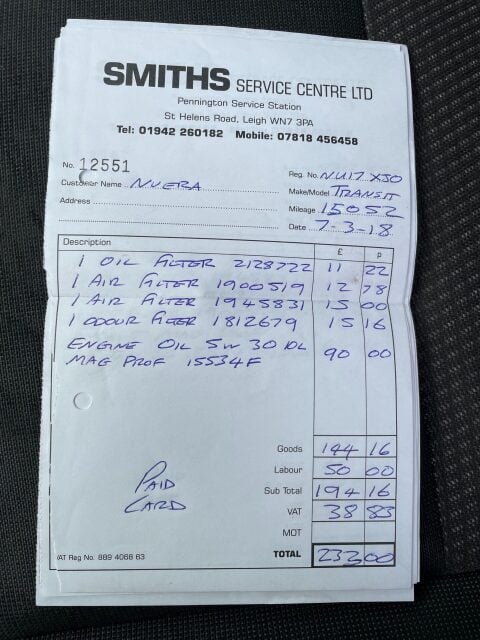 SMITHS SERVICE CENTRE LTD
Pennington Service Station
St Helens Road, Leigh WN7 3PA
Tel: 01942 260182 Mobile: 07818 456458
No. 12551
Reg. No. NU17 XJO
Customer Name NUERA
Make/Model TRANSIT
Address
Mileage 15052
Date 7-3-18
Description £ p
1 OIL FILTER 2128722 11 22
1 AIR FILTER 1900519 12 78
1 AIR FILTER 1945831 15 00
1 ODOUR FILTER 1812679 15 16
ENGINE OIL 5W 30 10L 90 00
MAG PROF 15534F
Goods 144 16
Labour 50 00
PAID Sub Total 194 16
CARD VAT 38 83
MOT
VAT Reg No: 889 4068 63 TOTAL 233 00